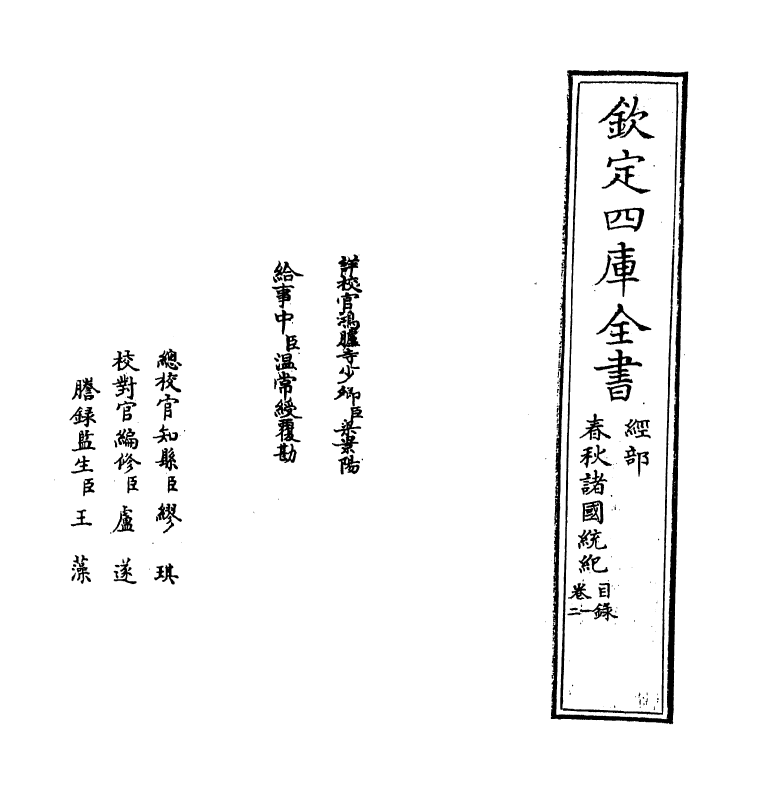 欽定四庫全書
經部
春秋諸國統紀
目錄
卷一
二
詳校官鴻臚寺少卿臣梁景陽
給事中臣温常綬覆勘
總校官知縣臣繆琪
校對官編修臣盧遂
謄録監生臣王藻